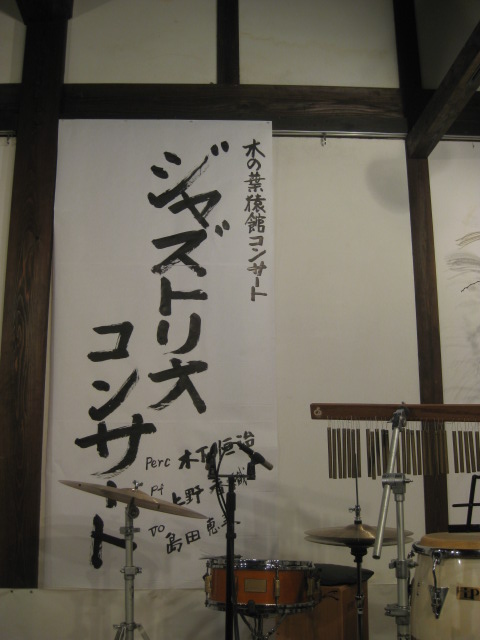 木の葉猿館コンサート
ジャズトリオ
コンサート
Perc 木下恒治
上野
島田恵